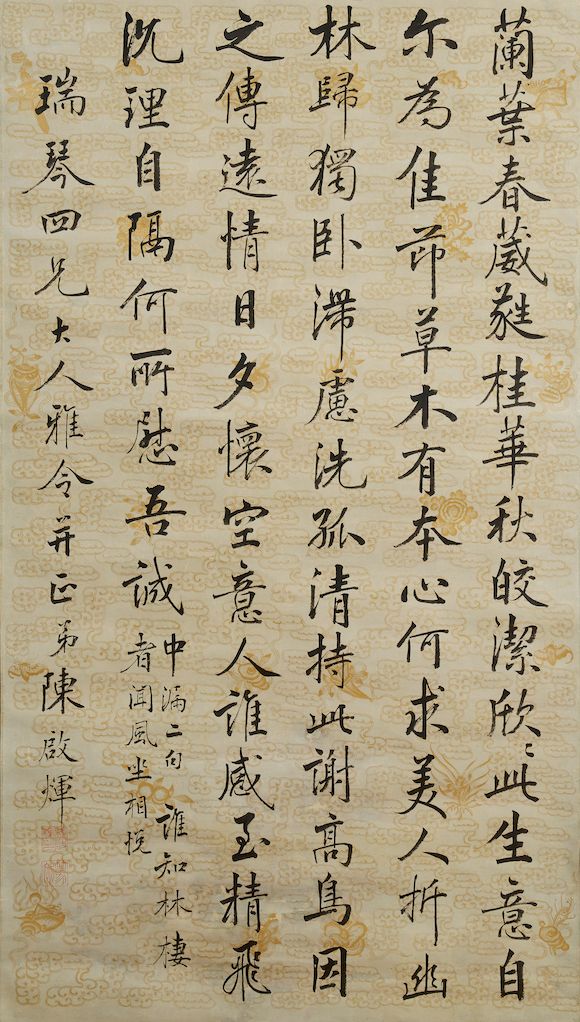 蘭葉春葳蕤桂華秋皎潔欣〻此生意自
尔為佳節草木有本心何求美人折幽
林歸獨卧滯慮洗孤清持此謝高鳥因
之傳遠情日夕懷空意人誰感至精飛
沉理自隔何所慰吾誠
中漏二句 誰知林棲
者聞風坐相悅
瑞琴四兄大人雅令并正弟陳啟輝